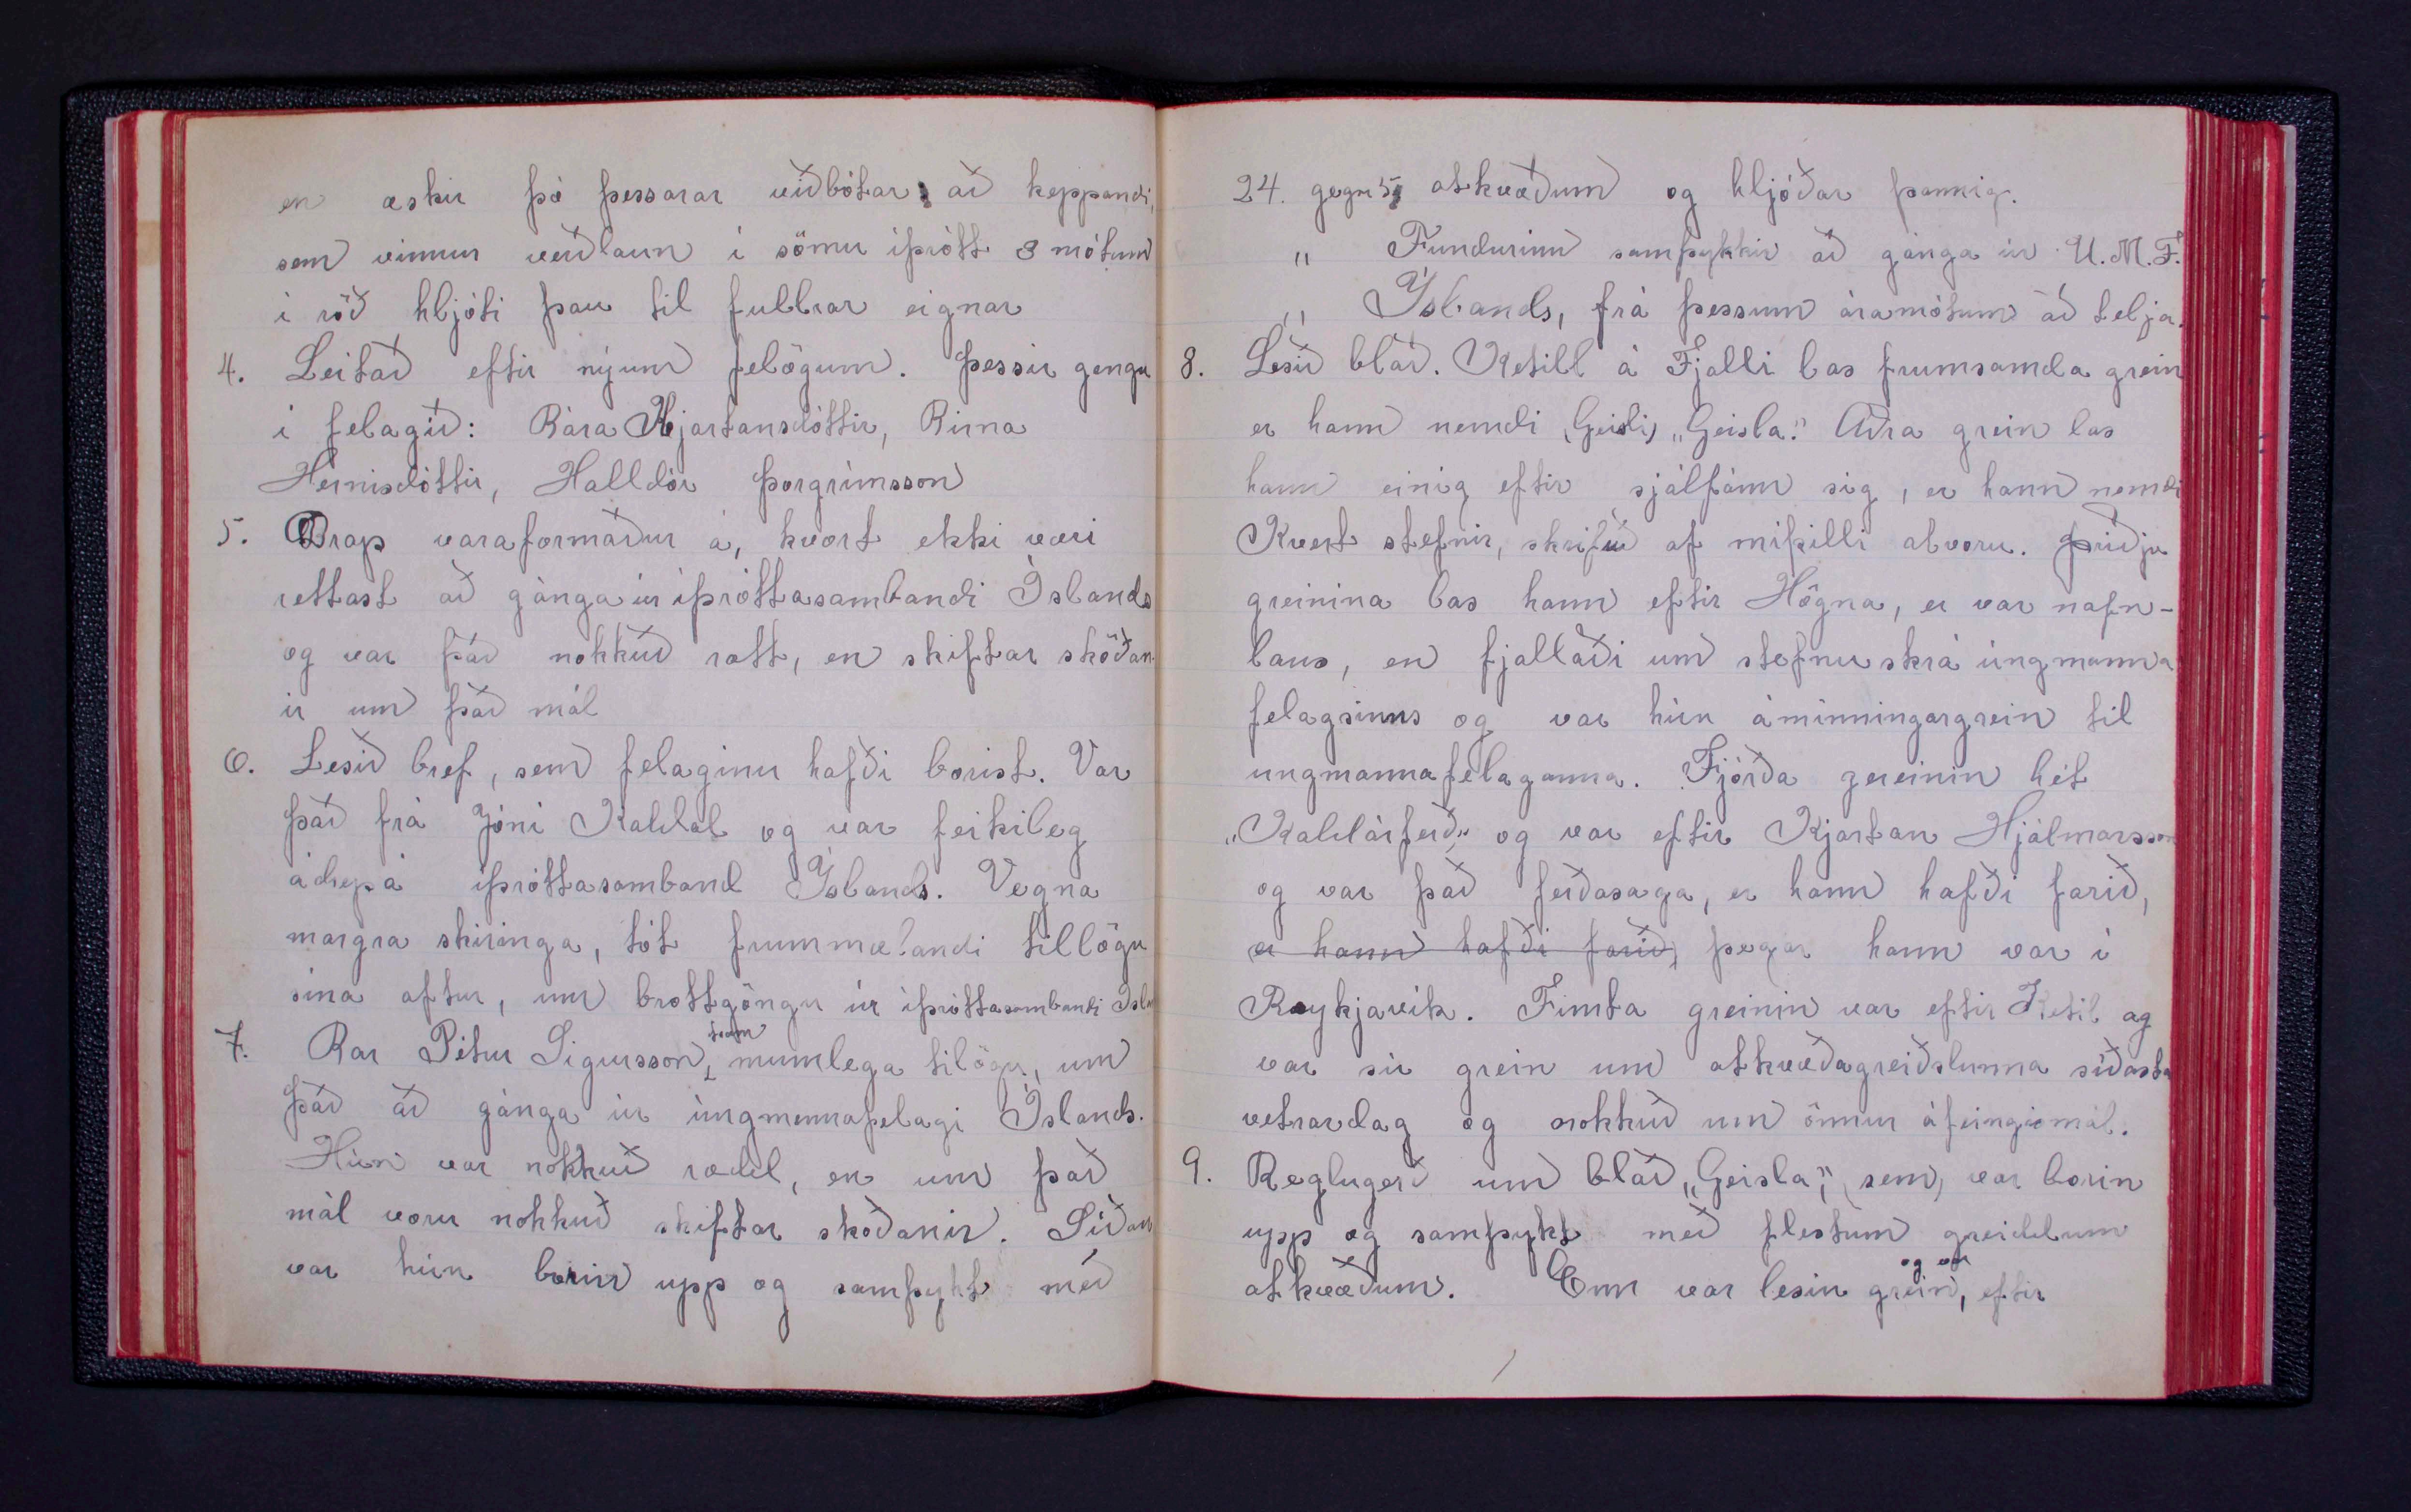 en æskir þó þessarar viðbótar; að keppandi,
sem vinnur verðlaun í sömu íþrótt 3 mótum
í röð hljóti þau til fullrar eignar
4. Leitað eftir nýum felögum. Þessir gengu
í felagið: Bára Kjartansdóttir, Birna
Hernisdóttir, Halldór Þorgrímsson
5. Drap varaformaður á, hvort ekki væri
rettast að gánga úr íþróttasambandi Íslands
og var það nokkuð rætt, en skiftar skoðan-
ir um það mál
6. Lesið bref, sem felaginu hafði borist. Var
það frá Jóni Kaldal og var feikileg
ádrepa íþróttasamband Íslands. Vegna
margra skiringa, tók frummælandi tillögu
sína aftur, um brottgöngu úr íþróttasambandi Ísl
7. Bar Pétur Sigursson, fram mumlega tilögu, um
það að gánga úr úngmennafelagi Íslands.
Hún var nokkuð rædd, en um það
mál voru nokkuð skiftar skoðanir. Síðan
var hún borin upp og samþykt með
24. gegn 5 atkvæðum og hljóðar þannig.
" Fundurinn samþykkir að gánga úr U.M.F.
" Íslands, frá þessum áramótum að telja.
8. Lesið blað. Ketill á Fjalli las frumsamda grein
er hann nemdi (Geisli) „Geisla." Aðra grein las
hann einig eftir sjálfann sig, er hann nemdi
Kvert stefnir, skrifuð af mikilli alvoru. Þriðju
greinina las hann eftir Högna, er var nafn-
laus, en fjallaði um stefnuskrá úngmanna
felagsinns og var hún áminningargrein til
ungmannafelaganna. Fjórða gereinin hét
„Kaldárferð„ og var eftir Kjartan Hjálmarsson
og var það ferðasaga, er hann hafði farið,
er hann hafði farið, þegar hann var í
Reykjavík. Fimta greinin var eftir Ketil og
var sú grein um atkvæðagreiðslunna síðasta
vetrardag og nokkuð um önnur áfeingismál.
9. Reglugerð um blað „Geisla", (sem) var borin
upp og samþykt með flestum greiddum
atkvæðum. Enn var lesin grein, og var eftir